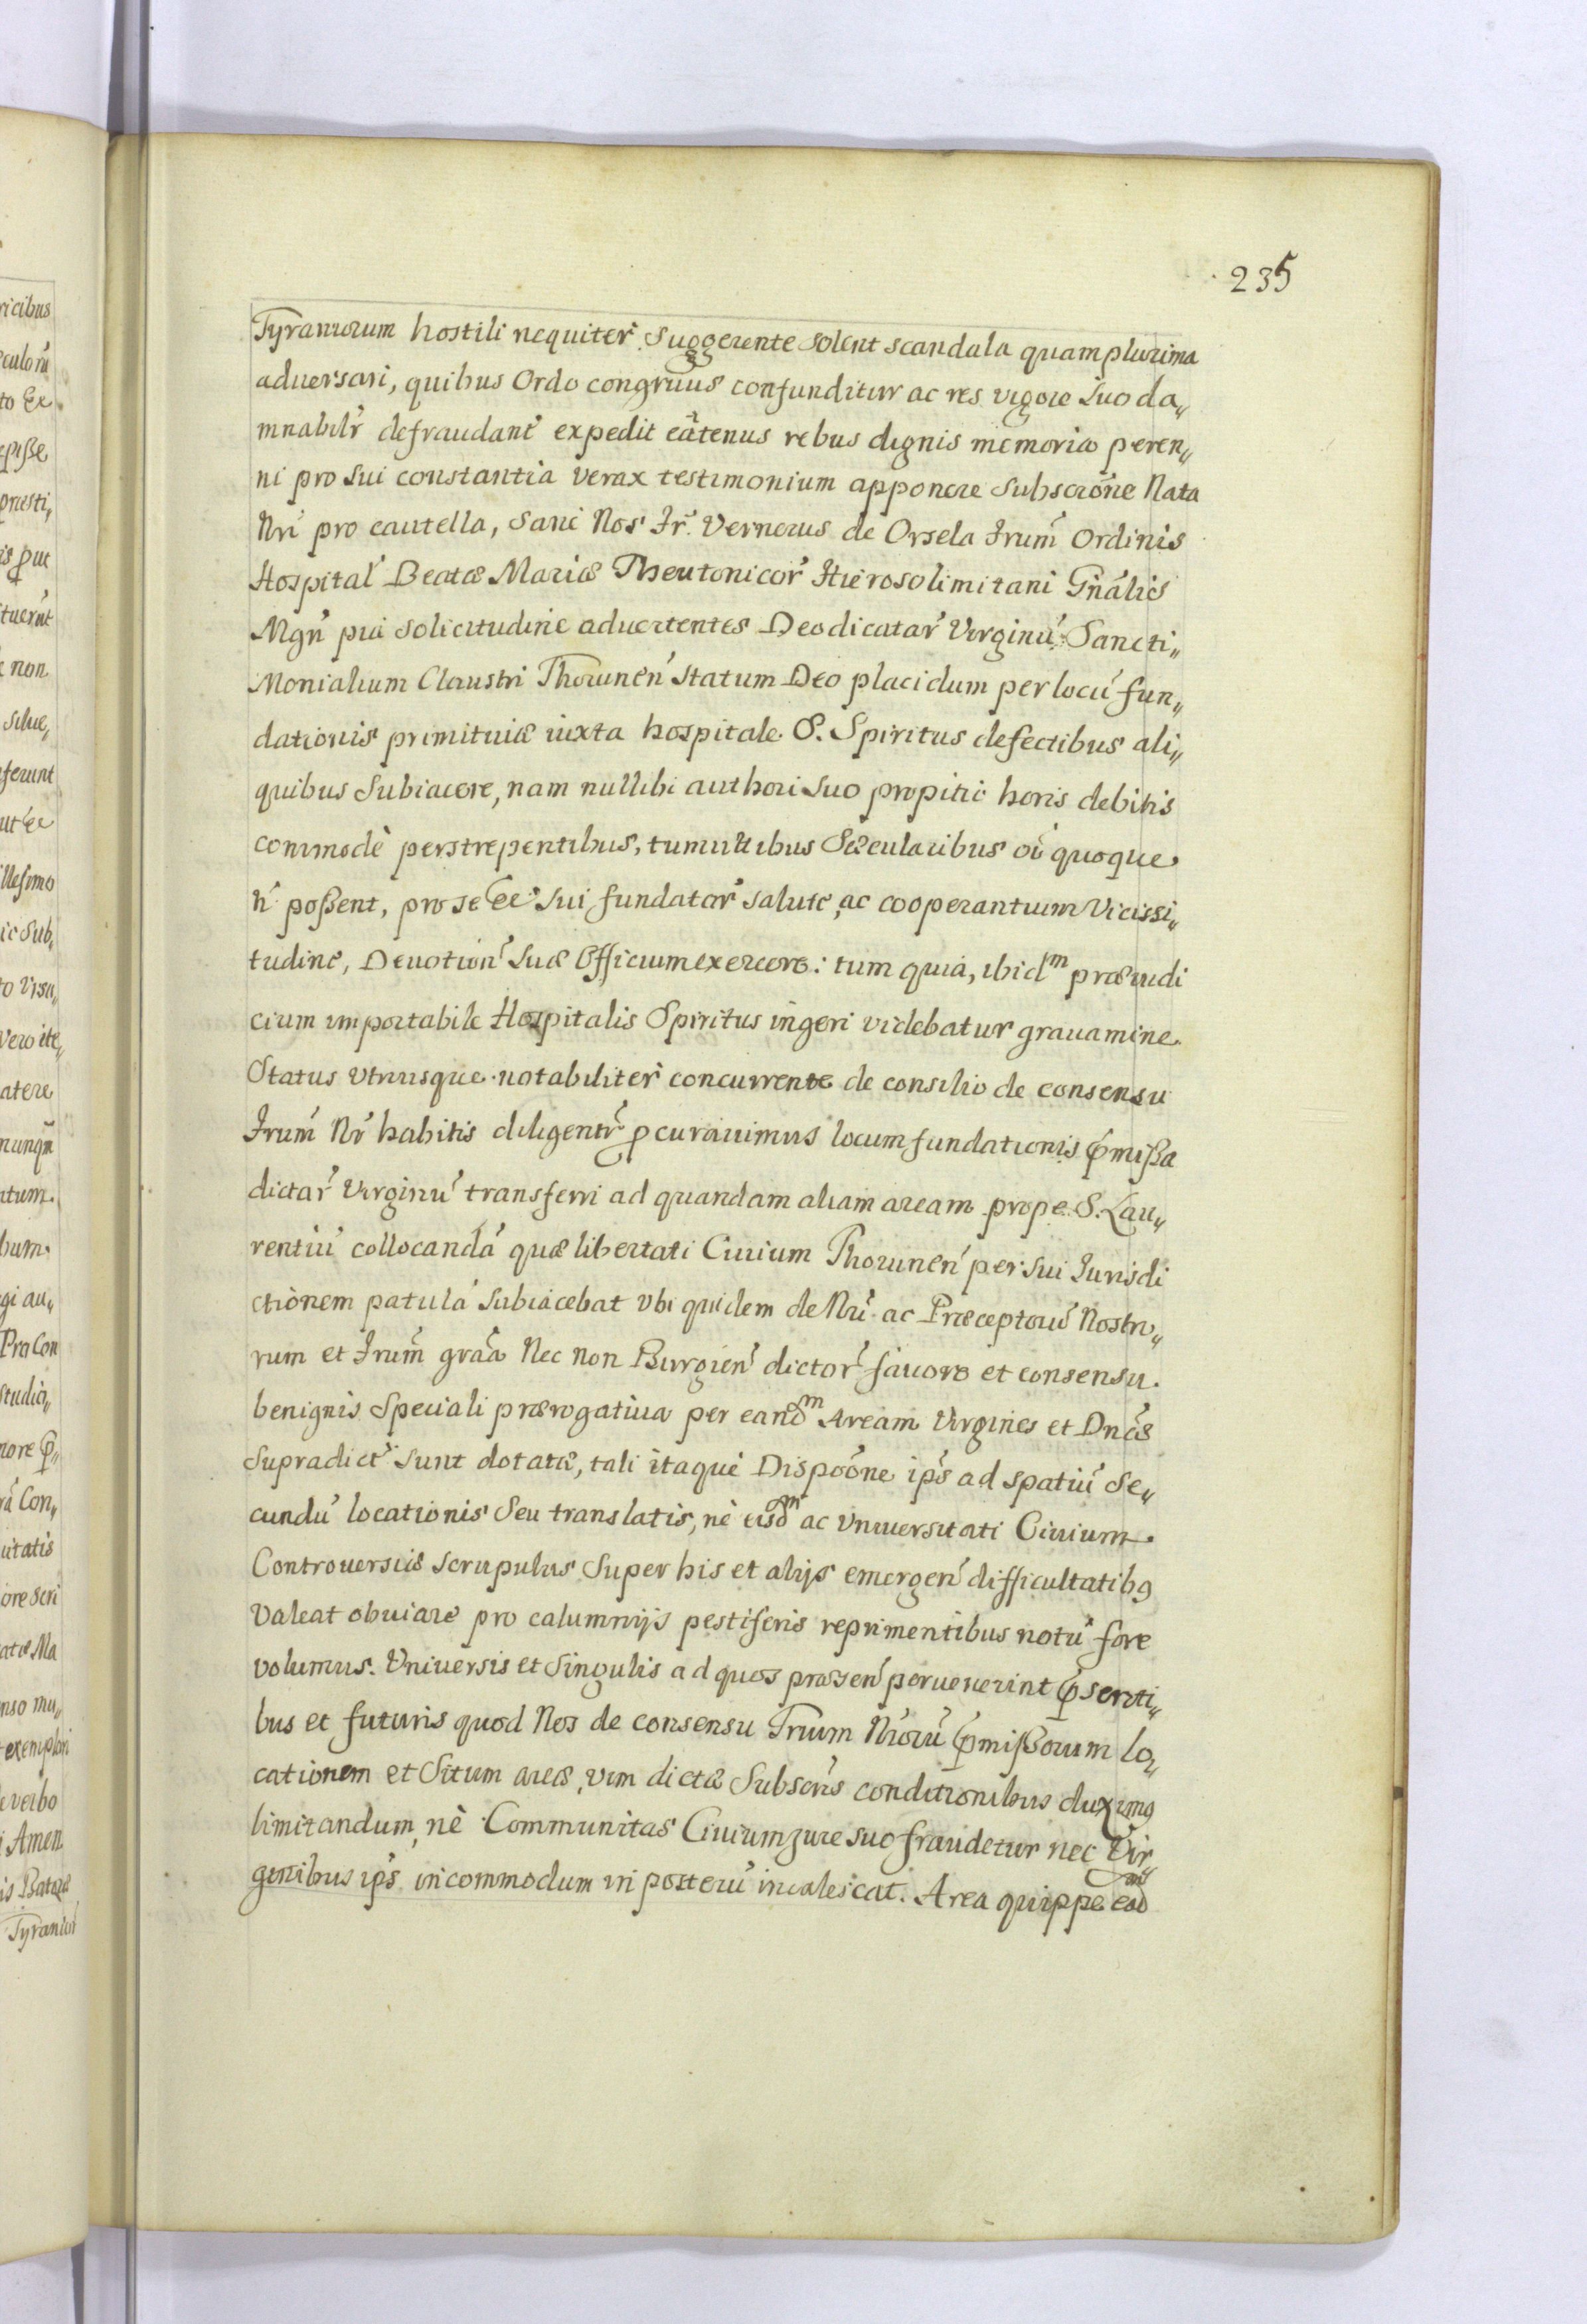 235
Tyranorum hostili nequiter suggerente solent scandala quamplurima
aduersari, quibus Ordo congruus confunditur ac res vigore suo da„
mnabilr̃ defraudant́ expedit eatenus rebus dignis memoria peren„
ni pro sui constantia verax testimonium apponere subscrõne Nata
Nrĩ pro cautella, sane Nos Fr̃. Vernerus de Orsela Frum̃ Ordinis
Hospital̃ Beatæ Mariæ Theutonicor̃ Hierosolimitani Gñalis
Mgr̃ pia solicitudine aduertentes Deodicatar̃ Virginũ Sancti„
Monialium Claustri Thorunen̂ statum Deo placidum per locũ fun„
dationis primitiuæ iuxta hospitale S. Spiritus defectibus ali„
quibus subiacere, nam nullibi authori suo propitie horis debitis
commodè perstrepentibus, tumultibus Sæcularibus oĩ quoque
ñ poßent, pro se et sui fundator̃ salute, ac cooperantium Vicissi„
tudine, Deuotion̂ suæ officium exercere: tum quia, ibidᵐ præiudi
cium importabile Hospitalis Spiritus ingeri videbatur grauamine
Status vtriusque notabiliter concurrente de consilio de consensu
Frum̃ Nr̃ habitis diligentr̃ ꝓcurauimus locum fundationis p̃mißa
dictar̃ Virginũ transferri ad quandam aliam aream prope S. Lau„
rentiũ collocandã quæ libertati Ciuium Thorunen̂ per sui Iurisdi
ctionem patulã subiacebat vbi quidem de Nrĩ ac Præceptorũ Nostro„
rum et Frum̃ grãa Nec non Burgien̂ dictor̃ fauore et consensu
benignis speciali prærogatiua per eandᵐ Aream Virgines et Dnæ̃
supradict̃ sunt dotatæ, tali itaque Dispõone ip̃s ad spatiũ Se„
cundũ locationis seu translatis, nè eisdᵐ ac Vniuersitati Ciuium
Controuersiis scrupulus super his et alijs emergen̂ difficultatibꝰ
Valeat obuiare pro calumnijs pestiferis reprimentibus notũ fore
volumus. Vniuersis et singulis ad quos præsen̂ peruenerint p̃senti„
bus et futuris quod Nos de consensu Frum Nrorũ p̃mißorum lo„
cationem et Situm areæ, vim dictæ Subscris̃ conditionibus duximꝰ
limitandum, nè Communitas Ciuium jure suo fraudetur nec Vir„
ginibus ip̃s incommodum in posterũ inualescat. Area quippe eadᵐ